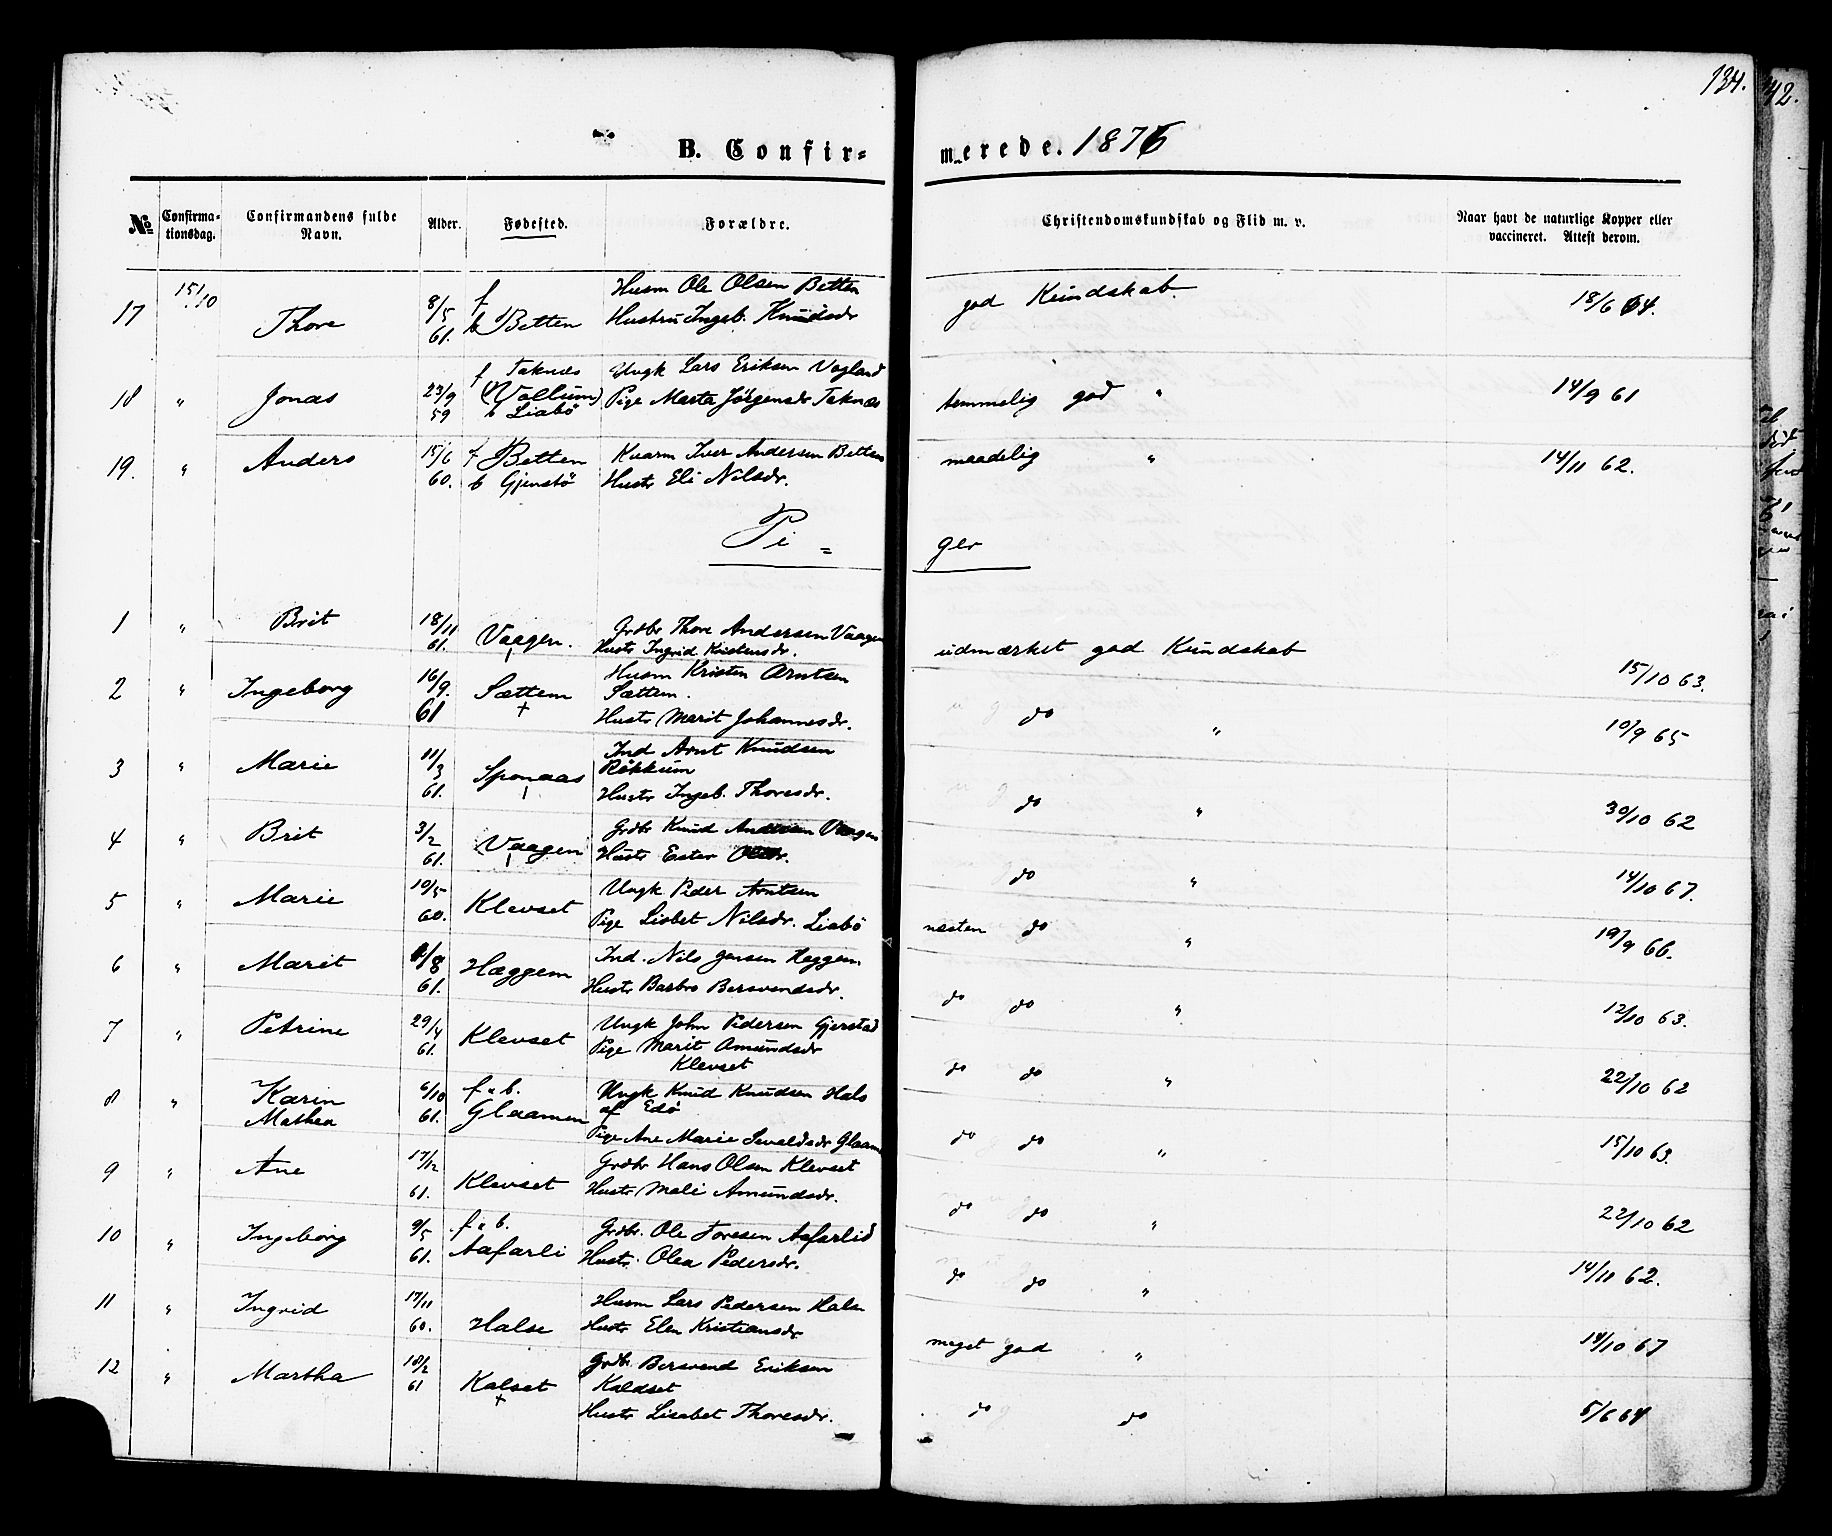 134.
B. Confir-
merede. 1876
No
Confirma-
tionsdag.
Confirmandens fulde
Navn.
Alder.
Fødested.
Forældre.
Christendomskundskab og Flid m. v.
Naar havt de naturlige Kopper eller
vaccineret. Attest derom.
17 15/10 Thore 8/5 61. f b Betten
Husm Ole Olsen Betten
Hustru Ingeb. Knudsdr
god Kundskab. 18/6 64.
18 " Jonas 23/9 59 f Taknes
(Vollum)
b Liabö
Ungk Lars Eriksen Vagland
Pige Marta Jörgensdr Taknæs
temmelig god " 14/9 61
19. " Anders 15/6 60. f Betten
b Gjenstö
Kaarm Iver Andersen Betten
Hustr Eli Nilsdr.
maadelig " 14/11 62.
Pi =
ger
1 " Brit 18/11 61. Vaagen.
Grdbr Thore Andersen Vaagen
Hustr Ingrid Kristensdr.
udmærket god Kundskab 15/10 63.
2 " Ingeborg 16/9. 61 Sættem
Husm Kristen Arntsen
Sættem.
Hustr Marit Johannesdr.
do " 10/9 65
3 " Marie 11/3 61. Sponaas
Ind Arnt Knudsen
Rökkum
Hustr Ingeb. Thoresdr.
do " 30/10 62
4 " Brit 3/2 61. Vaagen
Grdbr Knud Andersen Vaagen
Hustr Ester
do " 14/10 67.
5 " Marie 10/5 60. Klevset
Ungk Peder Arntsen
Pige Lisbet Nilsdr. Liabö
næsten do " 19/9 66.
6 " Marit /8 61. Hæggem
Ind. Nils Jensen Heggem
Hustr Barbro Bersvendsdr.
do do " 12/10 63.
7 " Petrine 29/4 61. Klevset
Ungk John Pedersen Gjerstad
Pige Marit Amundsdr
Klevset
do do " 22/10 62
8 " Karin
Mathea 6/10 61. f. o b.
Glaamen
Ungk Knud Knudsen Hals
af Edö
Pige Ane Marie Sevaldsdr Glaam
do do " 15/10 63.
9 " Ane 17/12 61. Klevset
Grdbr Hans Olsen Klevset
Hustr Mali Amundsdr.
do do " 22/10 62
10 " Ingeborg 9/5 61. f o b.
Aafarli
Grdbr. Ole Toresen Aafarlid
Hustr. Olea Pedersdr.
do do " 14/11 62.
11 " Ingrid 17/11 60. Halse
Husm Lars Pedersen Halse
Hustr Elen Kristiansdr
meget god " 14/10 67
12 " Martha 18/2 61 Kalset
Grdbr. Bersvend Eriksen
Kaldset
Hustr Lisabet Thoresdr.
do do 5/6 64
42.